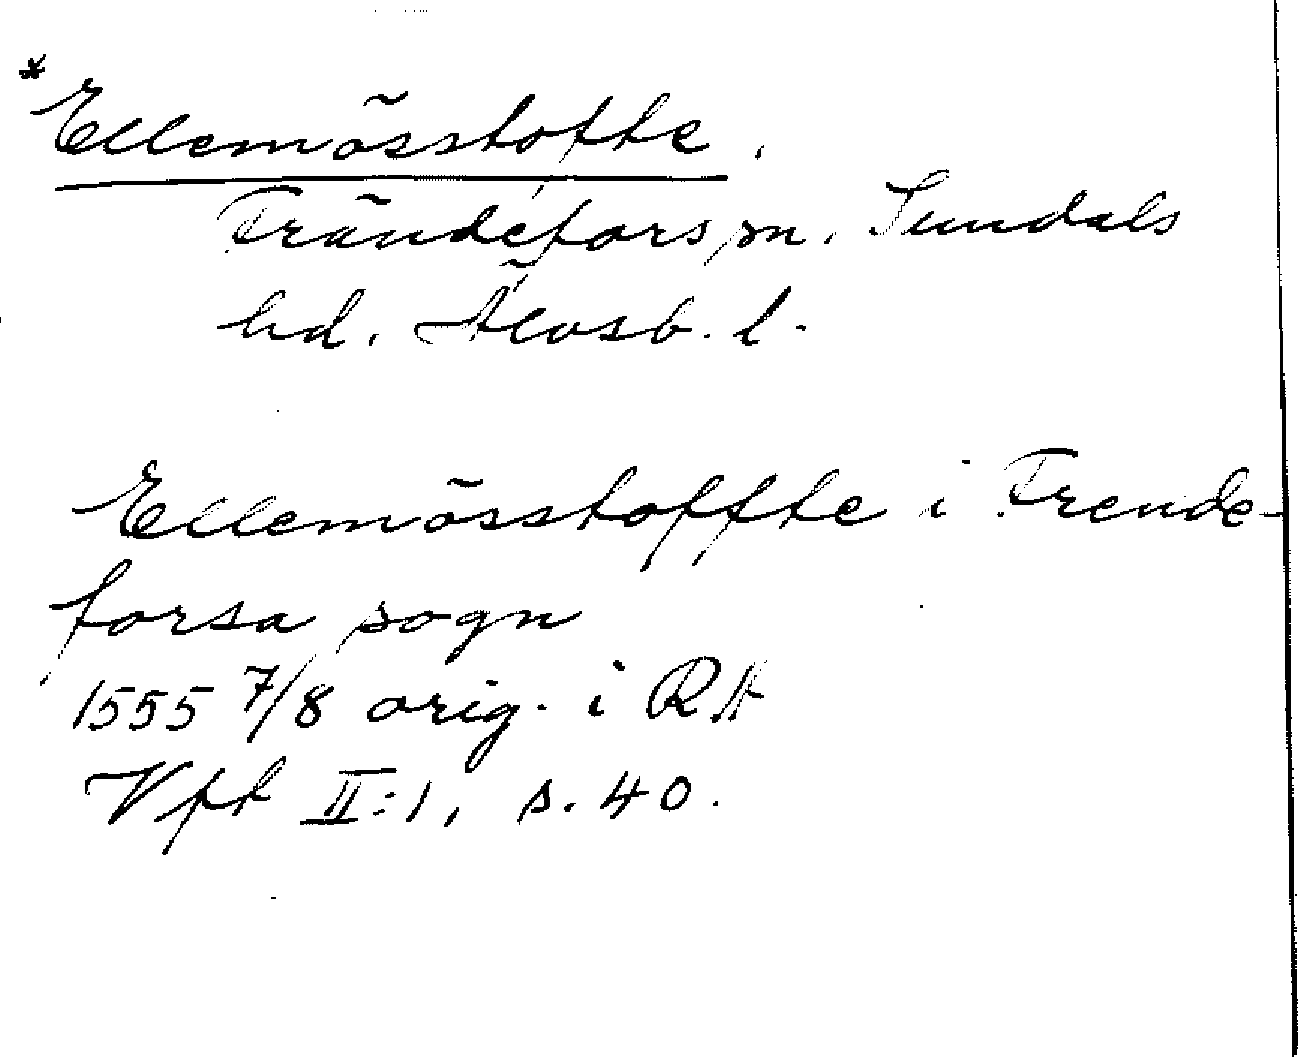 *Ellemösstofte.
Frändefors sn. Sundals
hd. Älvsb. l.
Ellemösstoffte i Frende-
forsa sogn
1555 7/8 orig. i RA
Vft II:1, s. 40.